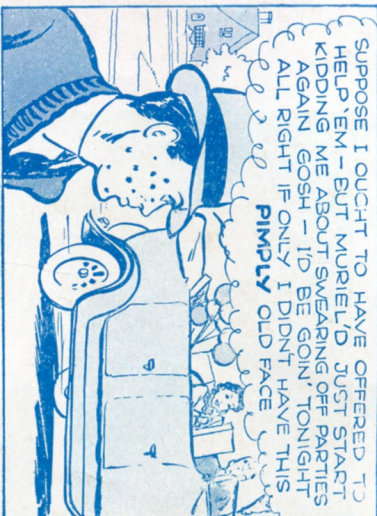 SUPPOSE I OUGHT TO HAVE OFFERED TO
HELP 'EM – BUT MURIEL'D JUST START
KIDDING ME ABOUT SWEARING OFF PARTIES
AGAIN GOSH – I'D BE GOIN' TONIGHT
ALL RIGHT IF ONLY I DIDN'T HAVE THIS
PIMPLY OLD FACE